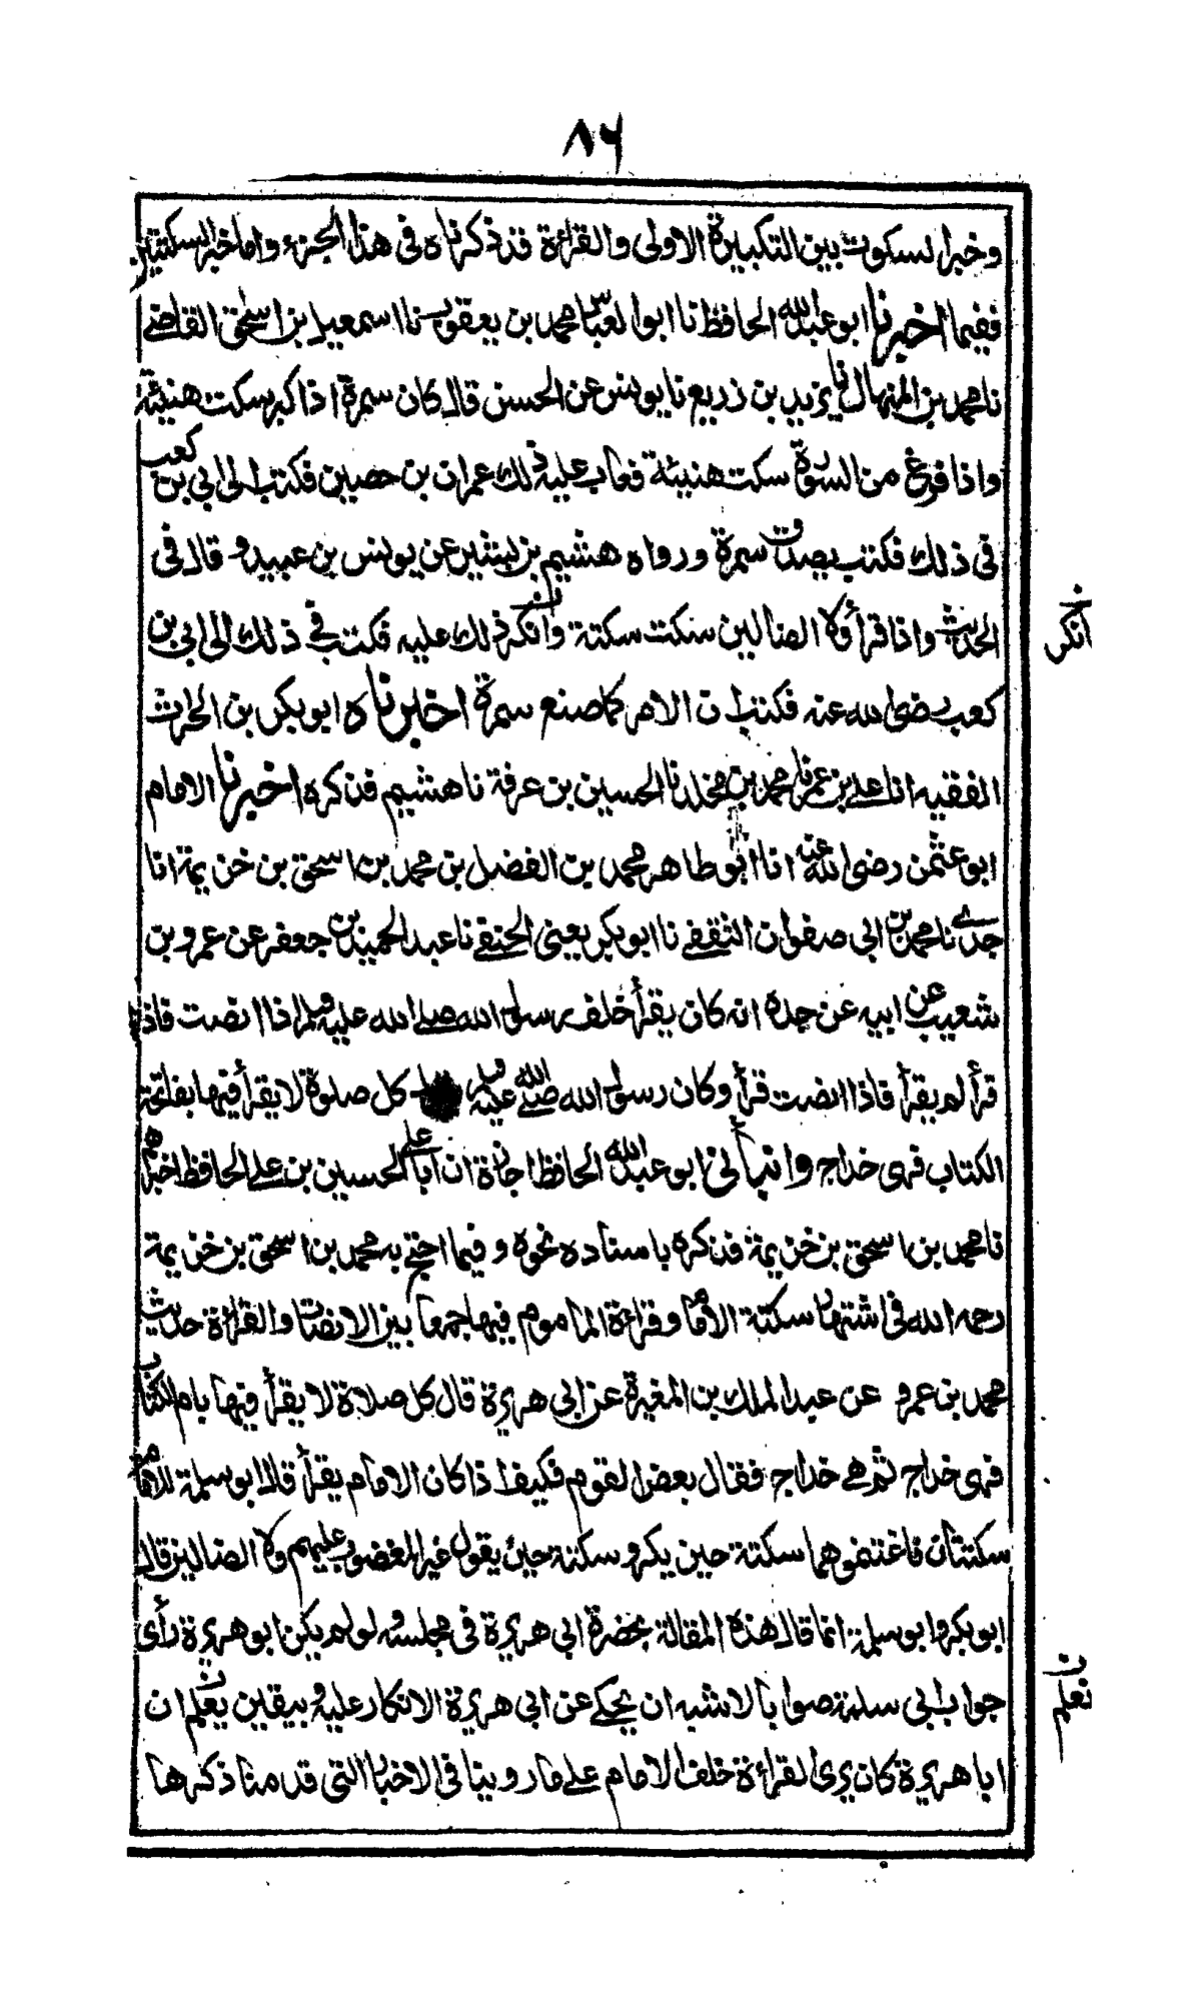 ٨٦
وخبر السكوت بين التكبيرة الاولى والقراءة قد ذكرناه فى هذا الجزء واما خبر السكتتين
ففيما اخبرنا ابو عبد الله الحافظ نا ابو العباس محمد بن يعقوب نا اسمعيل بن اسحق القاضے
نا محمد بن المنهال نا يزيد بن زريع نا يونس عن الحسن قال كان سمرة اذا كبر سكت هنيئة
واذا فرغ من السورة سكت هنيئة فعاب عليه ذلك عمران بن حصين فكتب الى ابي بن كعب
فى ذلك فكتب بصدق سمرة ورواه هشيم بن بشير عن يونس بن عبيد وقال فى
الحديث واذا قرأ ولا الضالين سكت سكتة وانكر ذلك عليه فكتب فے ذلك الى ابي بن
انكر
كعب رضى الله عنه فكتب ان الامر كما صنع سمرة اخبرناه ابو بكر بن الحارث
الفقيه انا علے بن عمر نا محمد بن مخلد نا الحسين بن عرفة نا هشيم فذكره اخبرنا الامام
ابو عثمن رضى الله عنه انا ابو طاهر محمد بن الفضل بن محمد بن اسحق بن خزيمة انا
جدے نا محمد بن ابي صفوان الثقفے نا ابو بكر يعنى الحنفے نا عبد الحميد بن جعفر عن عمرو بن
شعيب عن ابيه عن جده انه كان يقرأ خلف رسول الله صلے الله عليه وسلم اذا انصت فاذا
قرأ لم يقرأ فاذا انصت قرأ وكان رسول الله صلے الله عليه وسلم كل صلوة لا يقرأ فيها بفاتحة
الكتاب فهى خداج وانبأنى ابو عبد الله الحافظ اجازة ان ابا علے الحسين بن علے الحافظ اخبرهم
نا محمد بن اسحق بن خزيمة فذكره باسناده نحوه وفيما احتج به محمد بن اسحق بن خزيمة
رحمه الله فى اشتهار سكتة الامام وقراءة الماموم فيها جمعا بين الانصات والقراءة حديث
محمد بن عمرو عن عبد الملك بن المغيرة عن ابى هريرة قال كل صلاة لا يقرأ فيها بام الكتاب
فهى خداج ثم هے خداج فقال بعض القوم فكيف اذا كان الامام يقرأ قال ابو سلمة للامام
سكتتان فاغتنموهما سكتة حين يكبر وسكتة حين يقول غير المغضوب عليهم ولا الضالين قال
ابو بكر وابو سلمة انما قال هذه المقالة بحضرة ابي هريرة فى مجلسه ولو لم يكن ابو هريرة رأى
جواب ابى سلمة صوابا لاشبه ان يحكے عن ابى هريرة الانكار عليه وبيقين يعلم ان
نعلم
ابا هريرة كان يرى القراءة خلف الامام علے ما روينا فى الاخبار التى قدمنا ذكرها